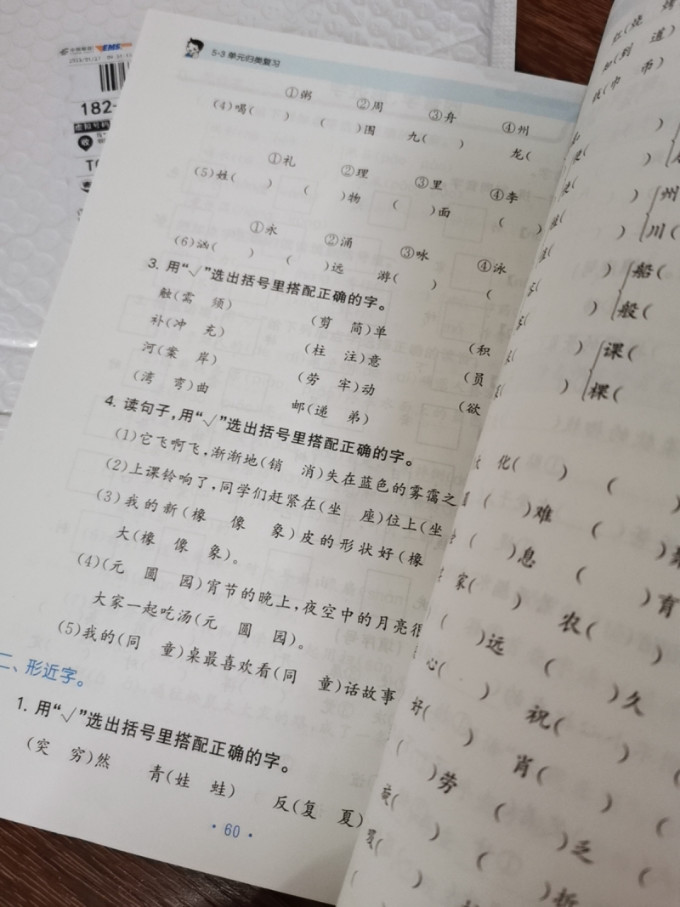 EMS
182-
5·3 单元归类复习
①粥 ②周 ③舟 ④州
(4)喝( ) ( )围 九( ) 龙(
①礼 ②理 ③里 ④李
(5)姓( ) ( )物 ( )面 (
①永 ②涌 ③咏 ④泳
(6)汹( ) ( )远 游( ) (
3. 用“√”选出括号里搭配正确的字。
触(需 须) (剪 简)单 (积
补(冲 充) (柱 注)意 (员
河(案 岸) (劳 牢)动 (欲
(湾 弯)曲 邮(递 弟)
4. 读句子,用“√”选出括号里搭配正确的字。
(1)它飞啊飞,渐渐地(销 消)失在蓝色的雾霭之
(2)上课铃响了,同学们赶紧在(坐 座)位上(坐
(3)我的新(橡 像 象)皮的形状好(橡
大(橡 像 象)。
(4)(元 圆 园)宵节的晚上,夜空中的月亮很
大家一起吃汤(元 圆 园)。
(5)我的(同 童)桌最喜欢看(同 童)话故事
二、形近字。
1. 用“√”选出括号里搭配正确的字。
(突 穷)然 青(娃 蛙) 反(复 夏)
·60·
烤
(到 道)
(巾 币)
州
川(
船(
般(
课(
棵(
化( ) (
( )难 (
( )息 ( )育
家( ) 农( )
( )远 ( )久
心( ) 祝( )
( ) 肖( )
( )劳 ( )乏